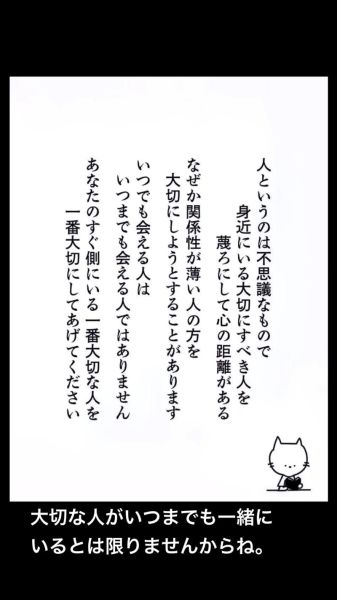 人というのは不思議なもので
身近にいる大切にすべき人を
蔑ろにして心の距離がある
なぜか関係性が薄い人の方を
大切にしようとすることがあります
いつでも会える人は
いつまでも会える人ではありません
あなたのすぐ側にいる一番大切な人を
一番大切にしてあげてください
大切な人がいつまでも一緒に
いるとは限りませんからね。